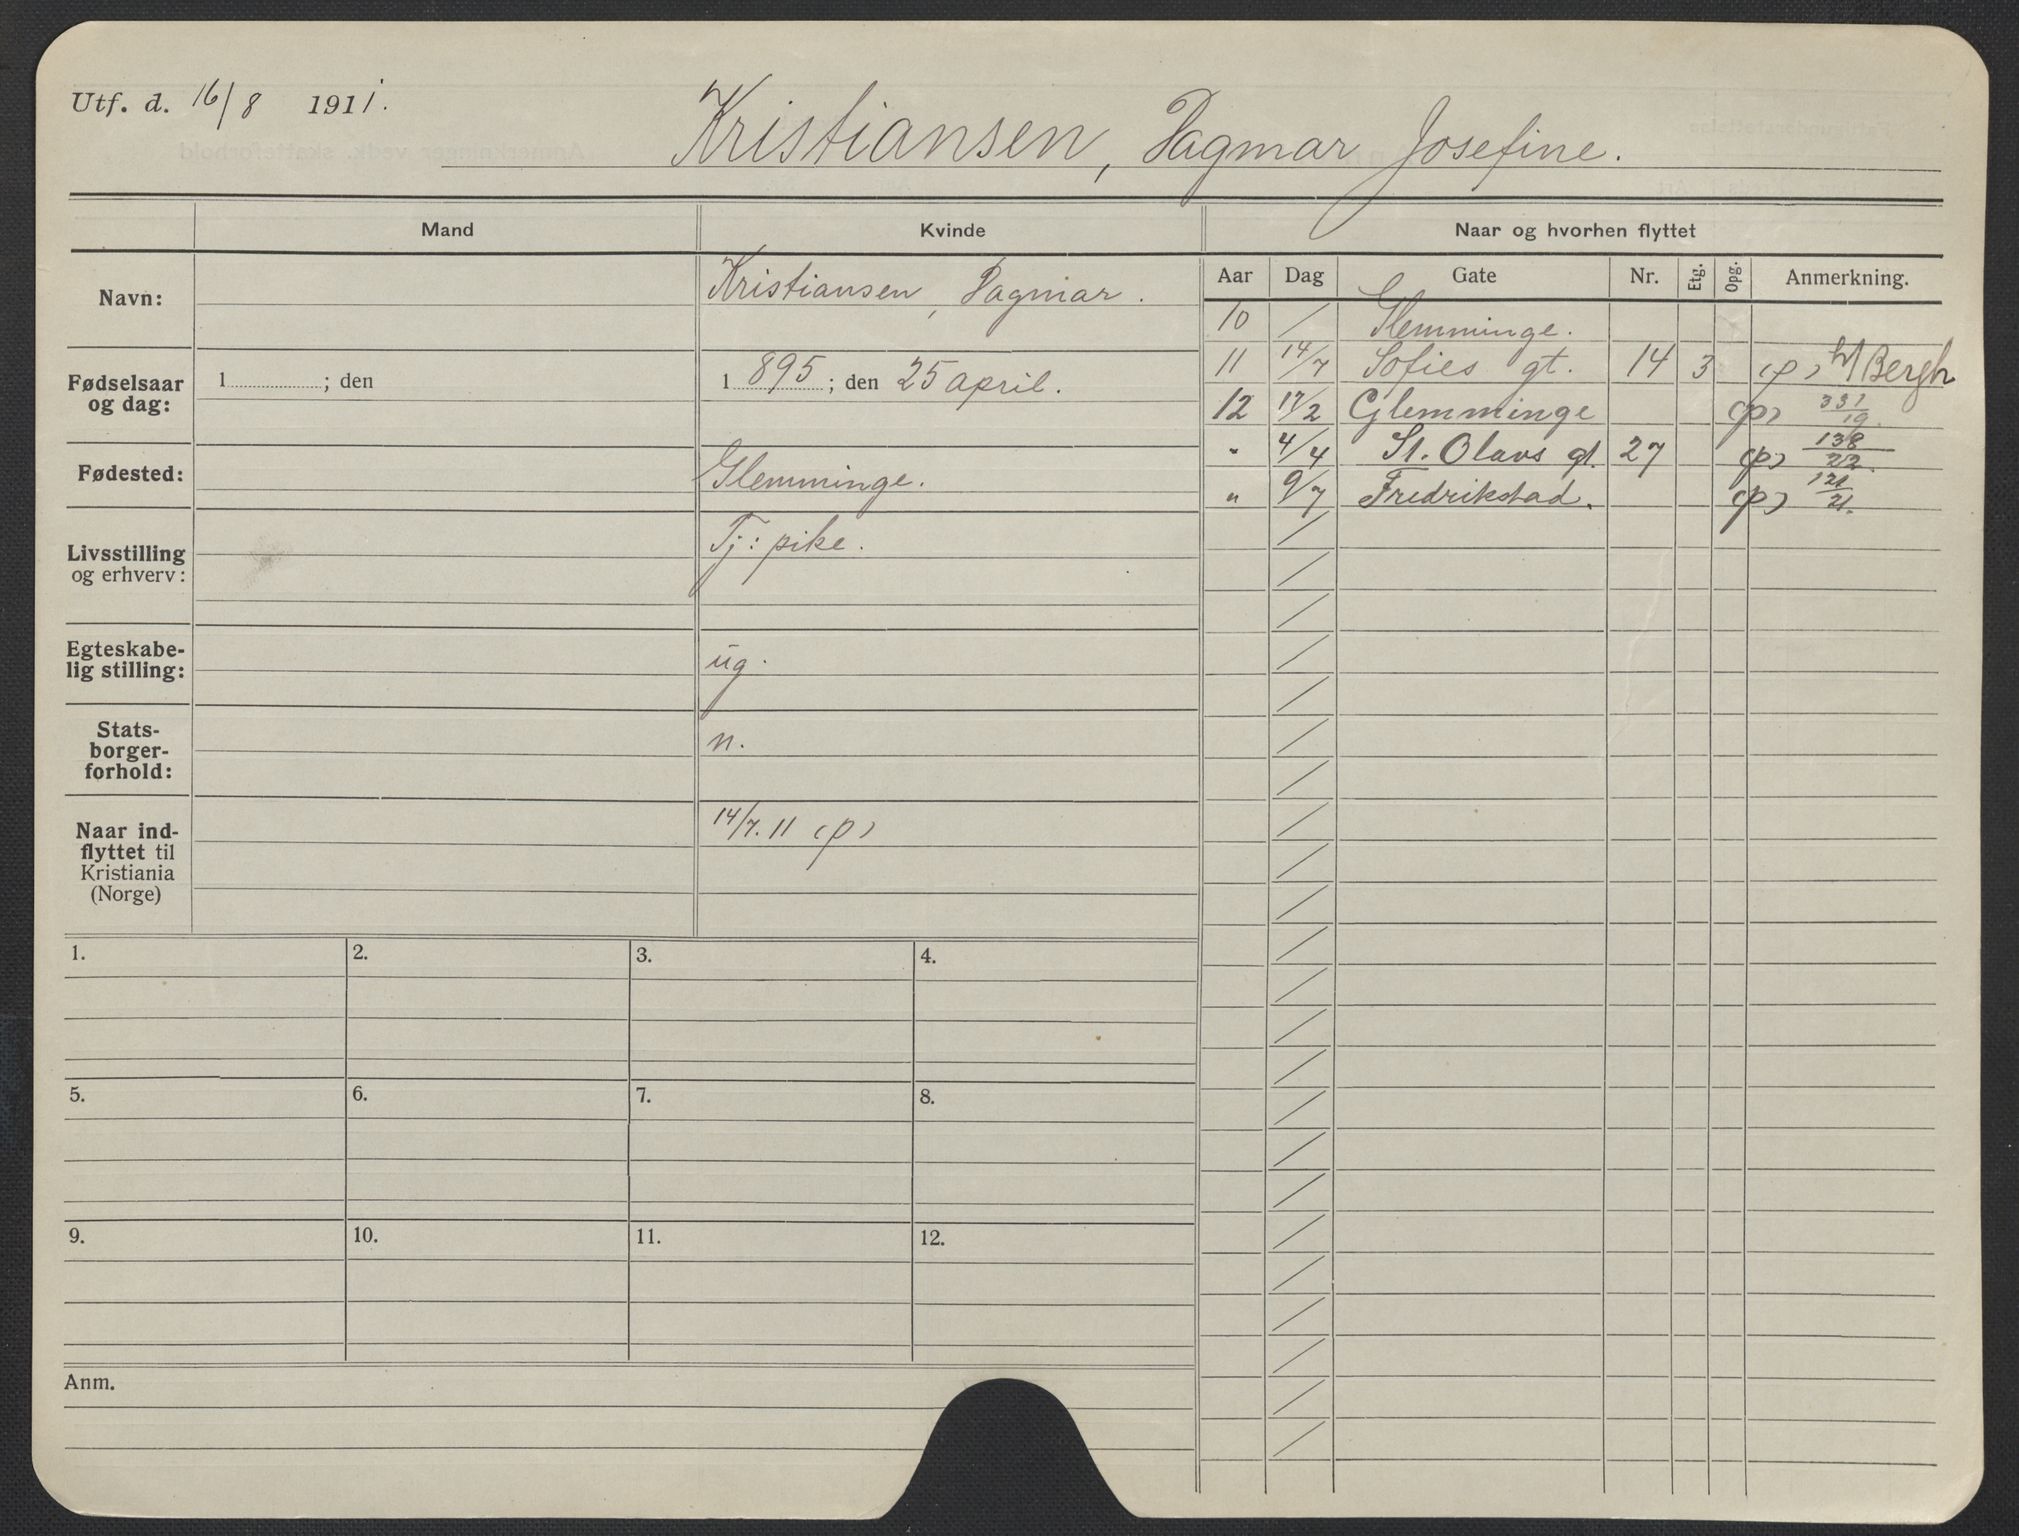 Utf. d. 16/8 1911.
Kristiansen, Dagmar Josefine.
Mand Kvinde Naar og hvorhen flyttet
Aar Dag Gate Nr. Etg. Opg. Anmerkning.
Navn: Kristiansen, Dagmar.
Fødselsaar og dag: 1 ; den 1 895 ; den 25 april.
Fødested: Glemminge.
Livsstilling og erhverv: Tj: pike.
Egteskabe-
lig stilling: ug.
Stats-
borger-
forhold: n.
Naar ind-
flyttet til
Kristiania
(Norge) 14/7. 11 (p)
10 / Glemminge.
11 14/7 Sofies gt. 14 3 (p) h/Bergh
12 17/2 Glemminge (p) 331/19.
" 4/4 St. Olavs gt. 27 (p) 138/22.
" 9/7 Fredrikstad. (p) 121/21.
1. 2. 3. 4.
5. 6. 7. 8.
9. 10. 11. 12.
Anm.